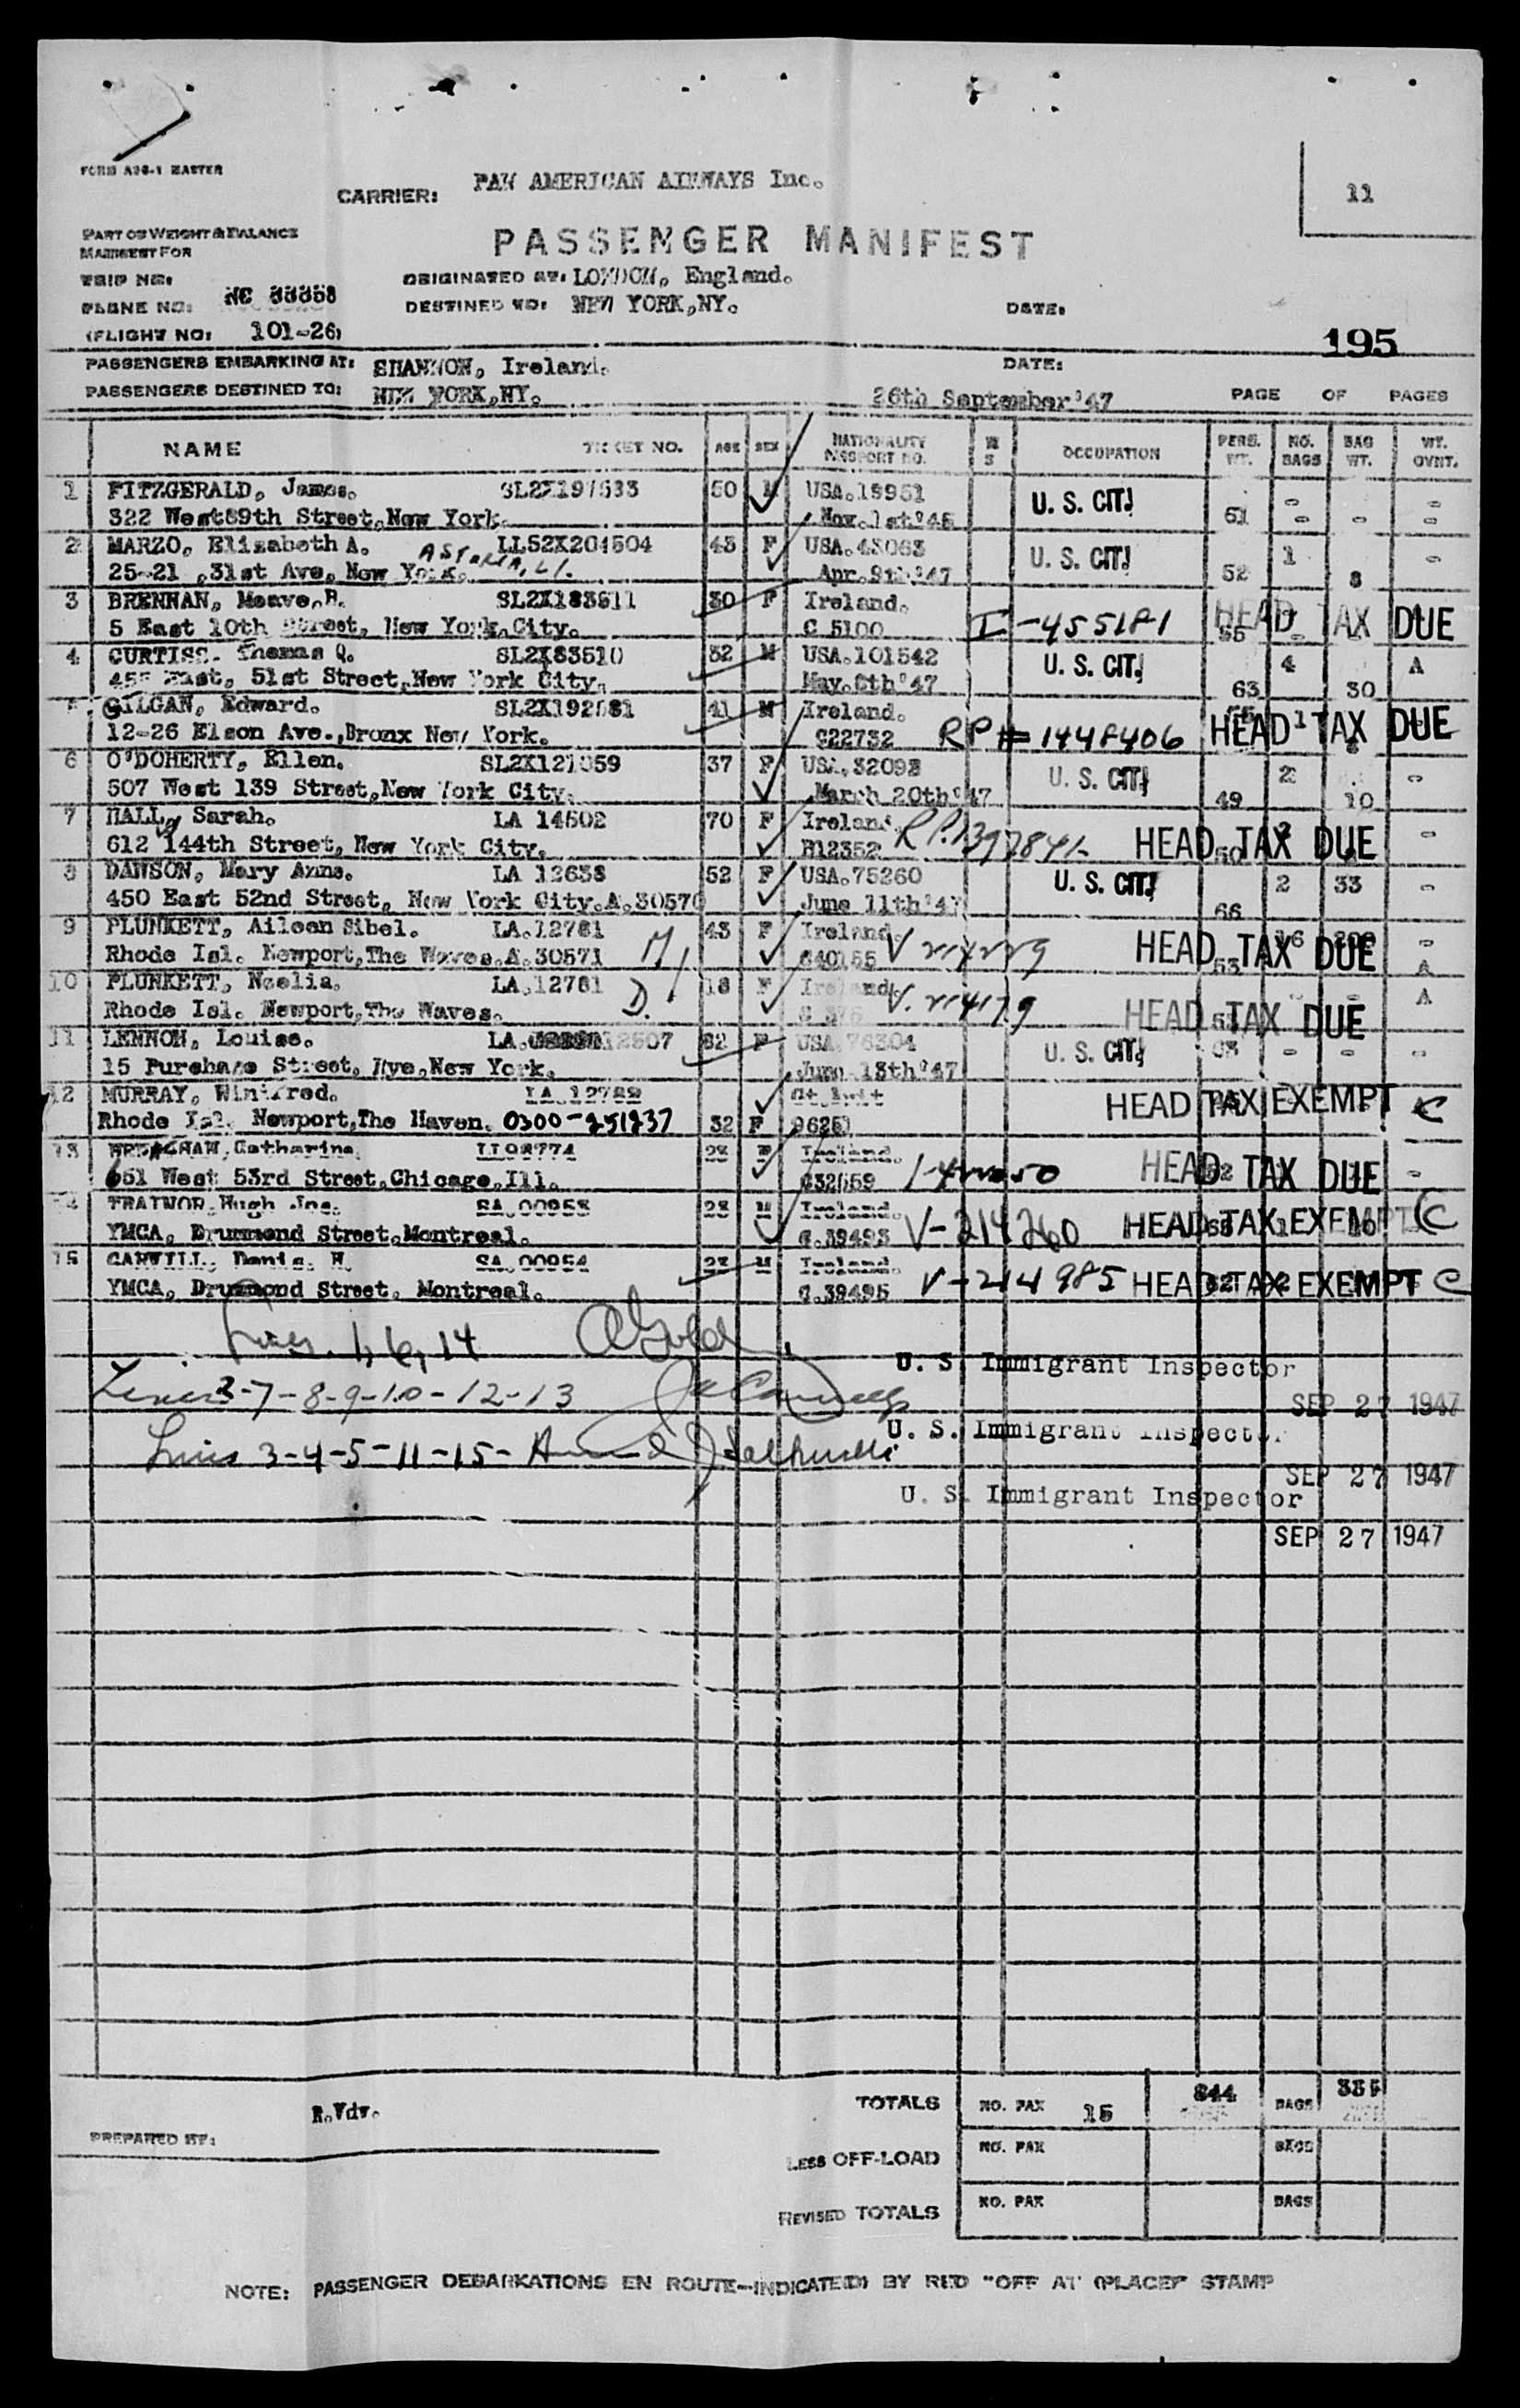 FORM A96-1 MASTER
CARRIER: PAN AMERICAN AIRWAYS Inc.
11
PART OF WEIGHT & BALANCE
MANIFEST FOR
PASSENGER MANIFEST
TRIP NO:
ORIGINATED AT: LONDON, England.
PLANE NO: NC
DESTINED TO: NEW YORK,NY.
DATE:
(FLIGHT NO: 101-26)
195
PASSENGERS EMBARKING AT: SHANNON, Ireland.
DATE:
PASSENGERS DESTINED TO: NEW YORK,NY.
26th September'47
PAGE OF PAGES
NAME TICKET NO. AGE SEX NATIONALITY PASSPORT NO. OCCUPATION PERS. WT. NO. BAGS BAG WT. WT. OVNT.
1 FITZGERALD, James. 50 M USA.19951 U. S. CIT.
322 West89th Street,New York. Nov.1st'46 61 - - -
2 MARZO, Elizabeth A. LL52X204504 43 F USA.43063 U. S. CIT. 1 -
25-21 ,31st Ave, New York. ASTORIA, L.I. Apr.9th'47 52 8
3 BRENNAN, Meave,B. SL2X183611 30 F Ireland. HEAD TAX DUE
5 East 10th Street, New York,City. C 5100 I-455181 55
4 CURTISS. Thomas Q. SL2X83510 32 M USA.101542 U. S. CIT. 4 A
455 East, 51st Street,New York City. May.8th'47 63 30
5 GILGAN, Edward. 41 M Ireland.
12-26 Elson Ave.,Bronx New York. C22732 RP # 1448406 HEAD TAX DUE
6 O'DOHERTY, Ellen. SL2X121059 37 F USA.32093 U. S. CIT. 2 -
507 West 139 Street,New York City. March 20th'47 49 10
7 HALL, Sarah. LA 14502 70 F Ireland. R.P. HEAD TAX DUE -
612 144th Street, New York City. B12352 50
8 DAWSON, Mary Anne. LA 12638 52 F USA.75260 U. S. CIT. 2 33 -
450 East 52nd Street, New York City.A.30570 June 11th'47 66
9 PLUNKETT, Aileen Sibel. LA.12781 43 F Ireland. HEAD TAX DUE -
Rhode Isl. Newport,The Waves.A.30571 M C40155 53 A
10 PLUNKETT, Neelia. LA.12781 18 F Ireland. HEAD TAX DUE A
Rhode Isl. Newport,The Waves. D.
11 LENNON, Louise. LA. 12507 62 F USA.76304 U. S. CIT. 63 - - -
15 Purchase Street, Rye,New York. June 13th'47
12 MURRAY, Winifred. LA.12782 HEAD TAX EXEMPT C
Rhode Isl. Newport,The Haven. 0300-251237 32 F
13 Catharine. 23 F Ireland. HEAD TAX DUE -
651 West 53rd Street,Chicago,Ill.
14 TRAINOR,Hugh Jos. SA.00953 23 M Ireland. HEAD TAX EXEMPT C
YMCA, Drummond Street,Montreal. C.39493 V-214260
15 Denis. H. SA.00954 23 M Ireland.
YMCA, Drummond Street, Montreal. C.39495 V-214985 HEAD TAX EXEMPT C
Lines. 1, 6, 14
U. S. Immigrant Inspector
Lines 2-7-8-9-10-12-13
SEP 27 1947
U. S. Immigrant Inspector
Lines 3-4-5-11-15-
SEP 27 1947
U. S. Immigrant Inspector
SEP 27 1947
TOTALS NO. PAX 15 844 BAGS
R.Vdv.
PREPARED BY:
LESS OFF-LOAD NO. PAX BAGS
REVISED TOTALS NO. PAX BAGS
NOTE: PASSENGER DEBARKATIONS EN ROUTE-INDICATED BY RED "OFF AT (PLACE)" STAMP